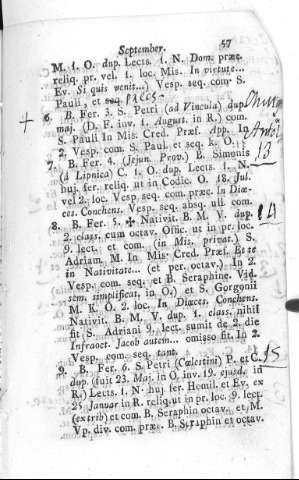 September. 57
M. 1. O. dup. Lects. 1. N. Dom. præc.
reliq. pr. vel. 1. loc. Mis. In virtute...
Ev. Si quis venit...) Vesp. seq. com. S.
Pauli, et seq.
6. B. Fer. 3. S. Petri (ad Vincula) dup.
maj. (D. F. inv. 1. August. in R.) com.
S. Pauli In Mis. Cred. Præf. App. In
2. Vesp. com. S. Paul. et seq. k. O.
7. B. Fer. 4. (Jejun. Prop.) B. Simonis
(à Lipnica) C. 1. O. dup. Lects. 1. N.
huj. fer. reliq. ut in Codic. O. 18. Jul.
vel 2. loc. Vesp. seq. com. præc. In Diœ-
ces. Conchens. Vesp. seq. absq. ull. com.
14
8. B. Fer. 5. ✠ Nativit. B. M. V. dup.
2. class. cum octav. Offic. ut in pr. loc.
9. lect. et com. (in Mis. privat.) S.
Adriam. M. In Mis. Cred. Præf. Et te
in Nativitate... (et per. octav.) In 2.
Vesp. com. seq. et B. Seraphine. Vid.
sem. simplificat. in O.) et S. Gorgonii
M. K. O. 2. loc. In Diœces. Conchens.
Nativit. B. M. V. dup. 1. class. nihil
fit S. Adriani 9. lect. sumit de 2. die
Infraoct. Jacob autem... omisso fit. In 2.
Vesp. com. seq. tant.
15
9. B. Fer. 6. S. Petri (Cælestini) P. et C.
dup. (fuit 23. Maj. in O. inv. 19. ejusd. in
R.) Lects. 1. N. huj fer. Homil. et Ev. ex
25 Januar in R. reliq. ut in pr. loc. 9. lect.
(extrib) et com. B. Seraphin octav. et M.
Vp. div. com. præc. B. Seraphin et octav.